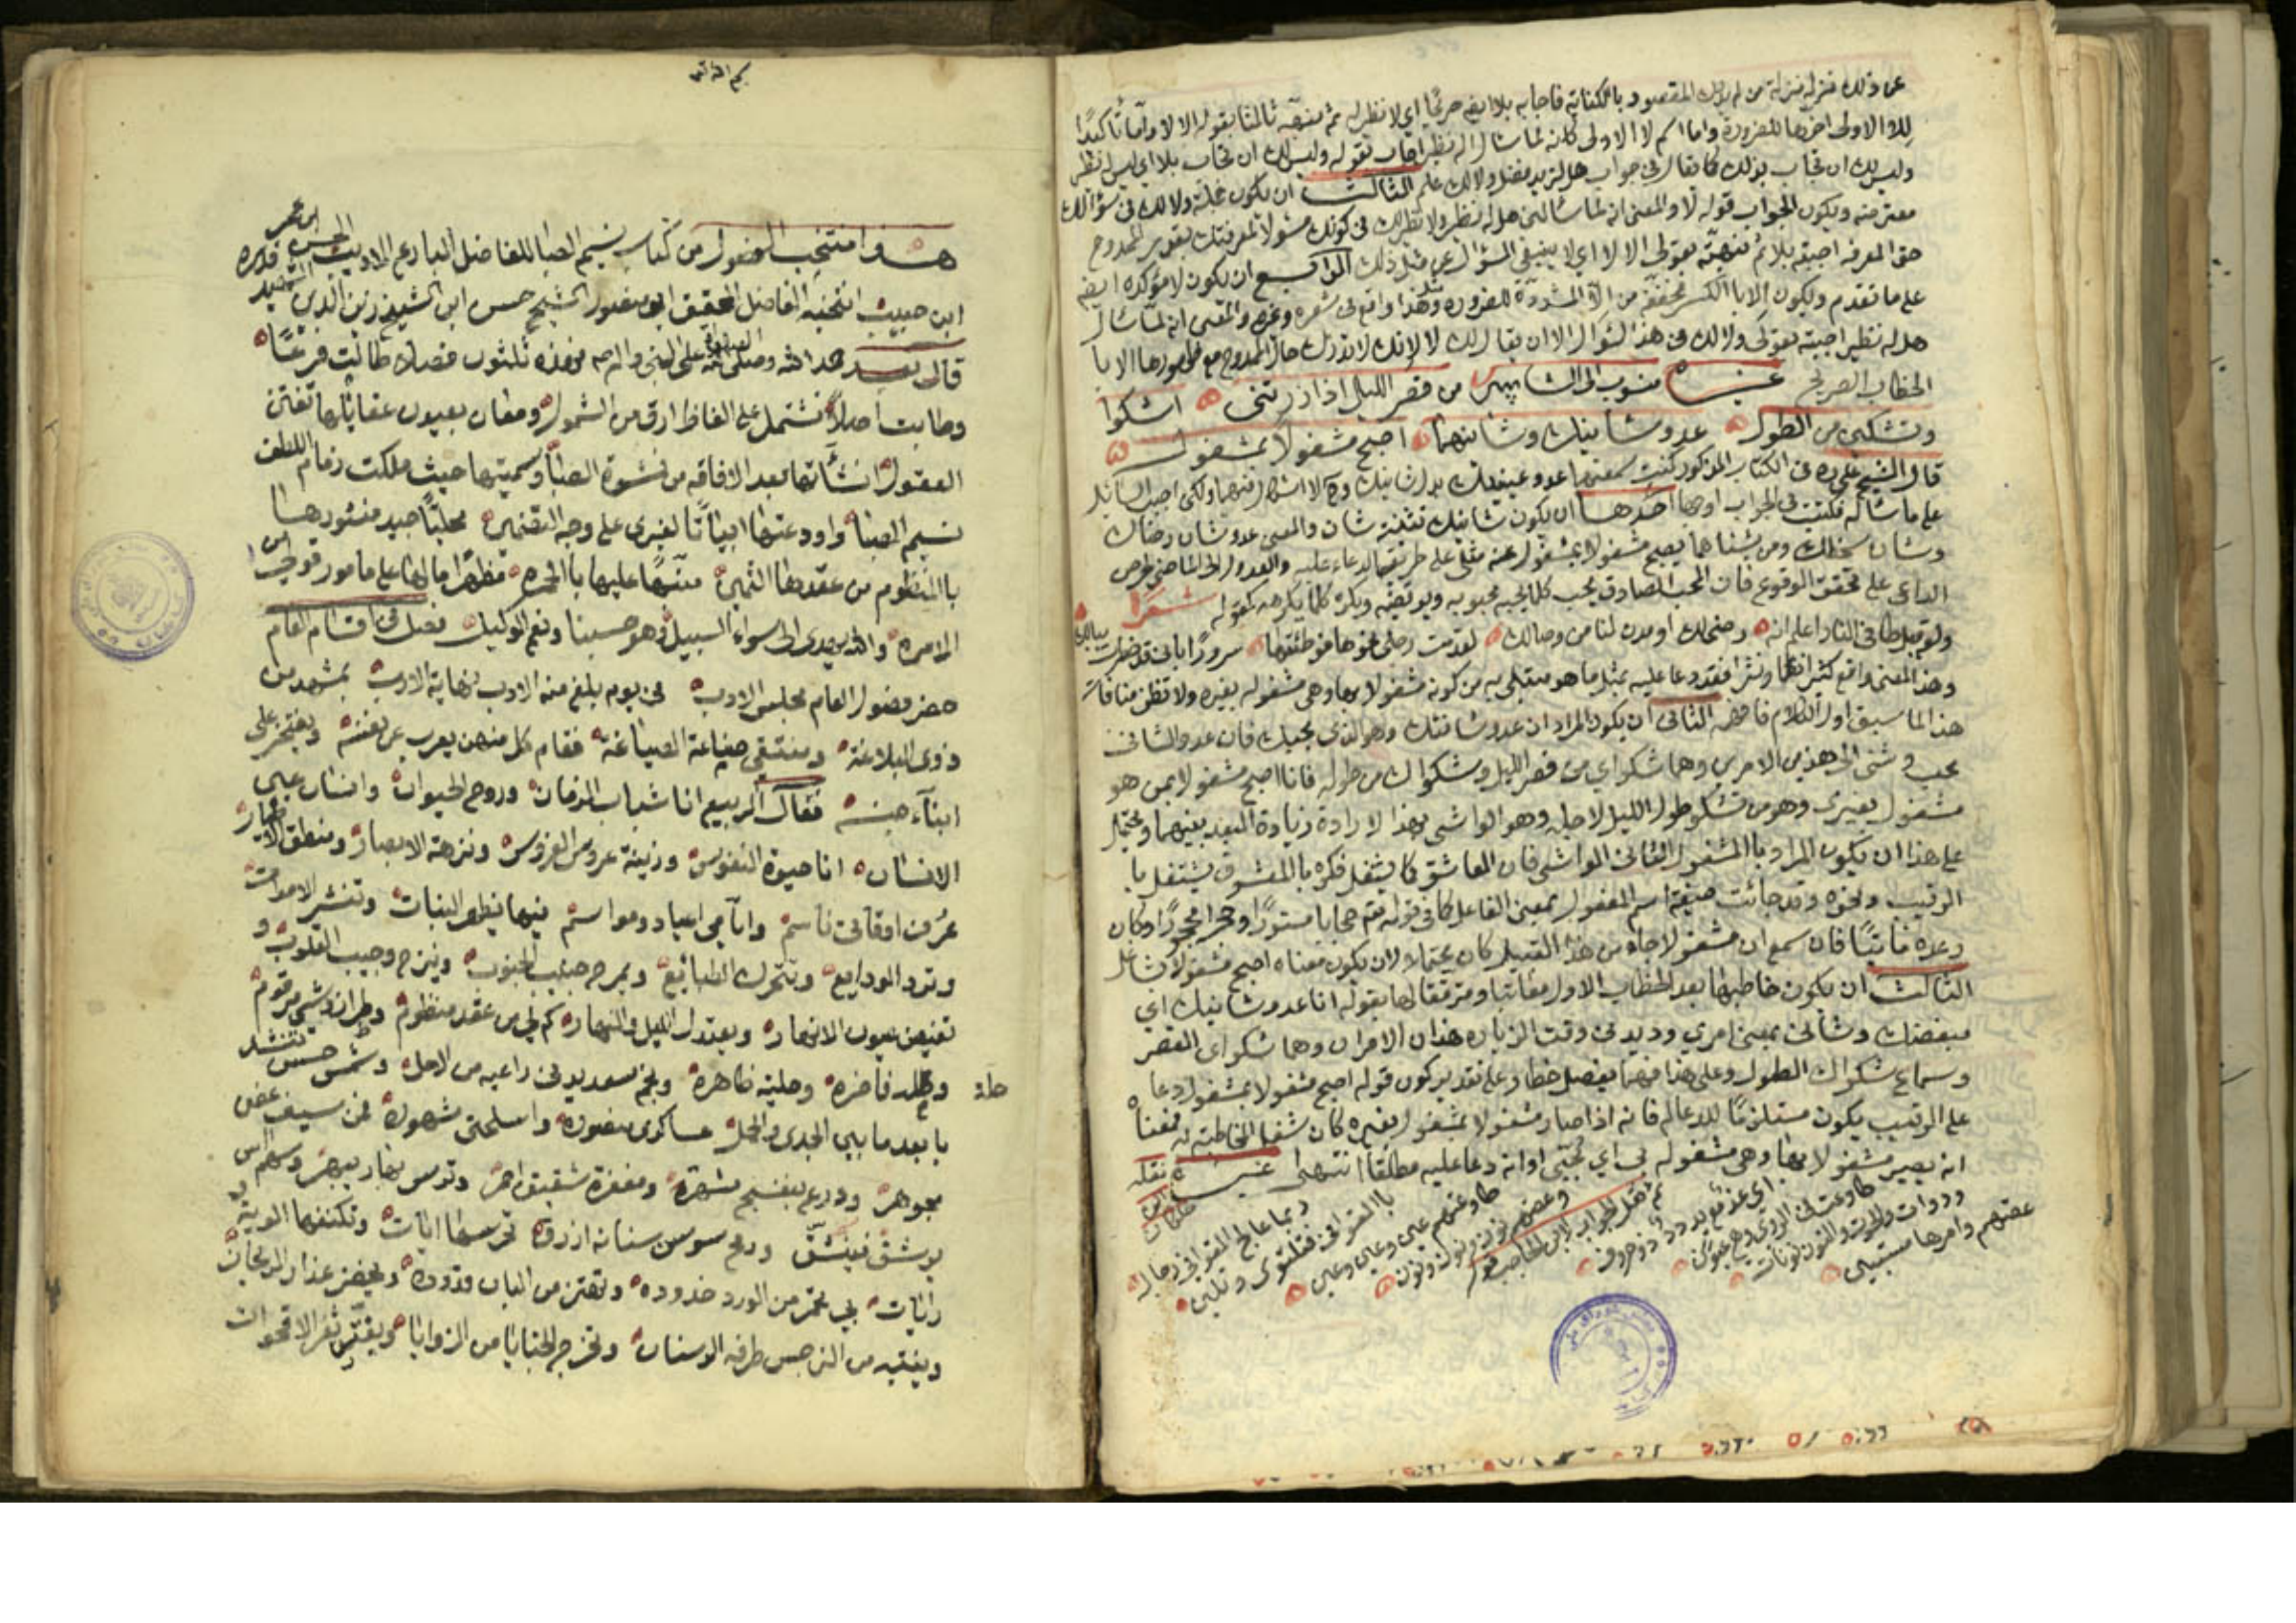 عن ذلك فنزله منزلة من لم يدرك المقصود بالكناية فاجابه بلا ايضا صريحا اي لا نظير له ثم نبهه ثالثا بقوله الا لا واما تأكيدا
للا الاولى اخرها للضرورة واما اسم لا الاولى كانه لما سأل اله نظير اجاب بقوله وليس لك ان تجاب بلا اي ليس له نظير
وليس لك ان تجاب بذلك كما يقال في جواب هل لزيد فضل ولا لك علم الثالث ان يكون جملة ولا لك في سؤالك
معترضة ويكون الجواب قوله لا والمعنى انه لما سألتني هل له نظير ولا نظير لك في كونك مسؤلا لمعرفتك بقدر الممدوح
حق المعرفة اجبته بلا ثم نبهته بقولي الا لا اي لا ينبغي السؤال عن مثل ذلك الرابع ان يكون لا مؤكدة ايضا
على ما تقدم ويكون الا بالكسر مخففة من الا المشددة للضرورة وهذا واقع في شعره وغيره والمعنى انه لما سأل
هل له نظير اجبته بقولي ولا لك في هذا السؤال الا ان يقال لك لا لانك لا تدرك حال الممدوح مع ظهورها الا با
الخطاب الصريح غيره منسوب الى الشاب من قصر الليل اذا زرتني اشكوا
وتشكين من الطول عدو شانيك وشانيهما اصبح مشغولا بمشغول
قال الشيخ علي ره في الكتاب المذكور كنت سمعتهما عدو عينيك بدل شانيك ولكن اجبت السائل
على ما سأله فكتبت في الجواب اوجها احدها ان يكون شانيك تثنية شان والمعنى عدو شان رضاك
وشان سخطك ومن يشناهما يصبح مشغولا بمشغول عنه مثلي على طريقة الدعاء عليه والعدول الى الماضي لحرص
الداعي على تحقق الوقوع فان المحب الصادق يحب كلما يحبه محبوبه ويرتضيه ويكره كلما يكرهه كقوله شعرا
ولو قيل طا في النار اعلم انه رضى لك او مدن لنا من وصالك لقدمت رجلي نحوها فوطئتها سرورا باني قد خطرت ببالك
وهذا المعنى واقع كثيرا نظما ونثرا فقد دعا عليه بمثل ما هو مبتلى به من كونه مشغولا بها وهي مشغولة بغيره ولا تظن منافاة
هذا لما سبق اول الكلام فافهمه الثاني ان يكون المراد ان عدو شانئك وهو الذي يحبك فان عدو الشانئ
محب وشنى الى هذين الامرين وهما شكواي من قصر الليل وشكواك من طوله فانا اصبح مشغولا بمن هو
مشغول بغيري وهو من تشكو طول الليل لاجله وهو الواشي بهذا لارادة زيادة البعد بينهما ويحتمل
على هذا ان يكون المراد بالمشغول الثاني الواشي فان العاشق كما يشغل فكره بالمعشوق يشتغل با
الرقيب ونحوه وقد جائت صيغة اسم المفعول بمعنى الفاعل كما في قوله تعم حجابا مستورا وحجرا محجورا وكان
وعده مأتيا فان سمع ان مشغولا جاء من هذا القبيل كان محتملا ولان يكون معناه اصبح مشغولا بشاغل
الثالث ان يكون خاطبها بعد الخطاب الاول معاتبا ومترفقا لها بقوله انا عدو شانيك اي
مبغضك وشأني بمعنى امري وديدني وقت الزيارة هذان الامران وهما شكواي القصر
وسماع شكواك الطول وعلى هذا فيهما يفصل خطا وعلى تقدير كون قوله اصبح مشغولا بمشغول دعا
على الرقيب يكون مستلزما للدعا له فانه اذا صار مشغولا بمشغول بغيره كان شغل المخاطبة به فمعناه
انه يصير مشغولا بها وهي مشغولة بي اي تحبني او انه دعا عليه مطلقا انتهى غيره نقله
ربما عالج القوافي رجال
بالقوافي فتلتوي وتلين
طاوعتهم عين وعين وعين
وعصتهم نون ونون ونون
ثم نقل الجواب لابن الحاجب فهو
اي غد مع يد دد ذو حروف
طاوعت في الروي وهي عيون
ودواة والحوت والنون نونات
عصتهم وامرها مستبين
هذا منتخب الفصول من كتاب نسيم الصبا للفاضل البارع الاديب الحسن بن عمر
ابن حبيب انتخبه الفاضل المحقق ابو منصور الشيخ حسن ابن الشيخ زين الدين الشهيد قدس سره
قال بعد حمد الله وصلى الله على النبي واله فهذه ثلثون فصلا طالت فرعا
وطابت اصلا تشتمل على الفاظ ارق من الشمول ومعان بعيون عقايلها تفتن
العقول انشأتها بعد الافاقه من نشوة الصبا وسميتها حيث ملكت زمام اللطف
نسيم الصبا واودعتها ابياتا لغيري على وجه التضمين محليا جيد منثورها
بالمنظوم من عقدها الثمين منبها عليها بالحمره مظهرا ما لها على مامور قوتي من
الامره والله يهدي الى سواء السبيل وهو حسبنا ونعم الوكيل فصل في اقسام العام
حضر فصول العام مجلس الادب في يوم بلغ منه الاديب نهاية الارب بمشهد من
ذوي البلاغة ومنتقي صناعة الصياغة فقام كل منهم يعرب عن نفسه ويفتخر على
ابناء جنسه فقال الربيع انا شباب الزمان وروح الحيوان وانسان عين
الانسان انا حيوة النفوس وزينة عروس الغروس ونزهة الابصار ومنطق الاطيار
عرف اوقاتي ناسم وايامي اعياد ومواسم فيها يظهر النبات وتنشر الاموات
وترد الودايع وتتحرك الطبائع ويمرح جنيب الجنوب وينزح وجيب القلوب و
تفيض عيون الانهار ويعتدل الليل والنهار كم لي من عقد منظوم وطراز وشي مرقوم
وحله فاخره وحلية ظاهره ونجم سعد يدني راعيه من الامل وشمس حسن تنشد
حلة
يا بعد ما بين الجدي والحمل عساكري منصوره واسلحتي مشهوره فمن سيف غصن
مجوهر ودرع بنفسج مشهر ومغفر شقيق احمر وترس بهار يبهر وسهم اس
يرشق فينشق ورمح سوسن سنانه ازرق تحرسها ايات وتكنفها الوية و
رايات بي تحمر من الورد خدوده وتهتز من البان قدوده ويخضر عذار الريحان
وينتبه من النرجس طرفه الوسنان وتخرج الخبايا من الزوايا ويفتر ثغر الاقحوان